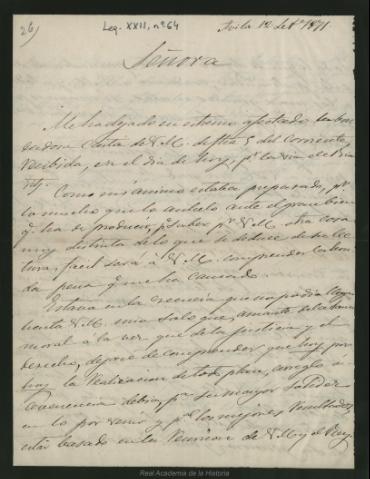 26)
Leg. XXII, nº 64
Avila 12 Set.e 1871
Señora
Me ha dejado en estremo afectado la bon
dadosa Carta de V.M. de fha 5 del Corriente,
Recibida, en el dia de hoy, pr la via
Como mi animo estaba preparado, pr
lo mucho que lo anhelo ante el gran bien
q. ha de producir, pa saber pr V.M. otra cosa
muy distinta de lo que se deduce de su lec
tura, facil será á V.M. comprender la hon
da pena q. me ha causado.
Estaba en la creencia que no podia
V.M. una sola que, amante de la
moral á la vez que de la justicia y el
derecho, dejase de comprender que hoy por
hoy la Realizacion de todo plan, arreglo ó
avenencia debia, pa su mayor solidez
en lo por venir y pa los mejores Resultados
estar basado en la Reunion de V.M. y el Rey
Real Academia de la Historia